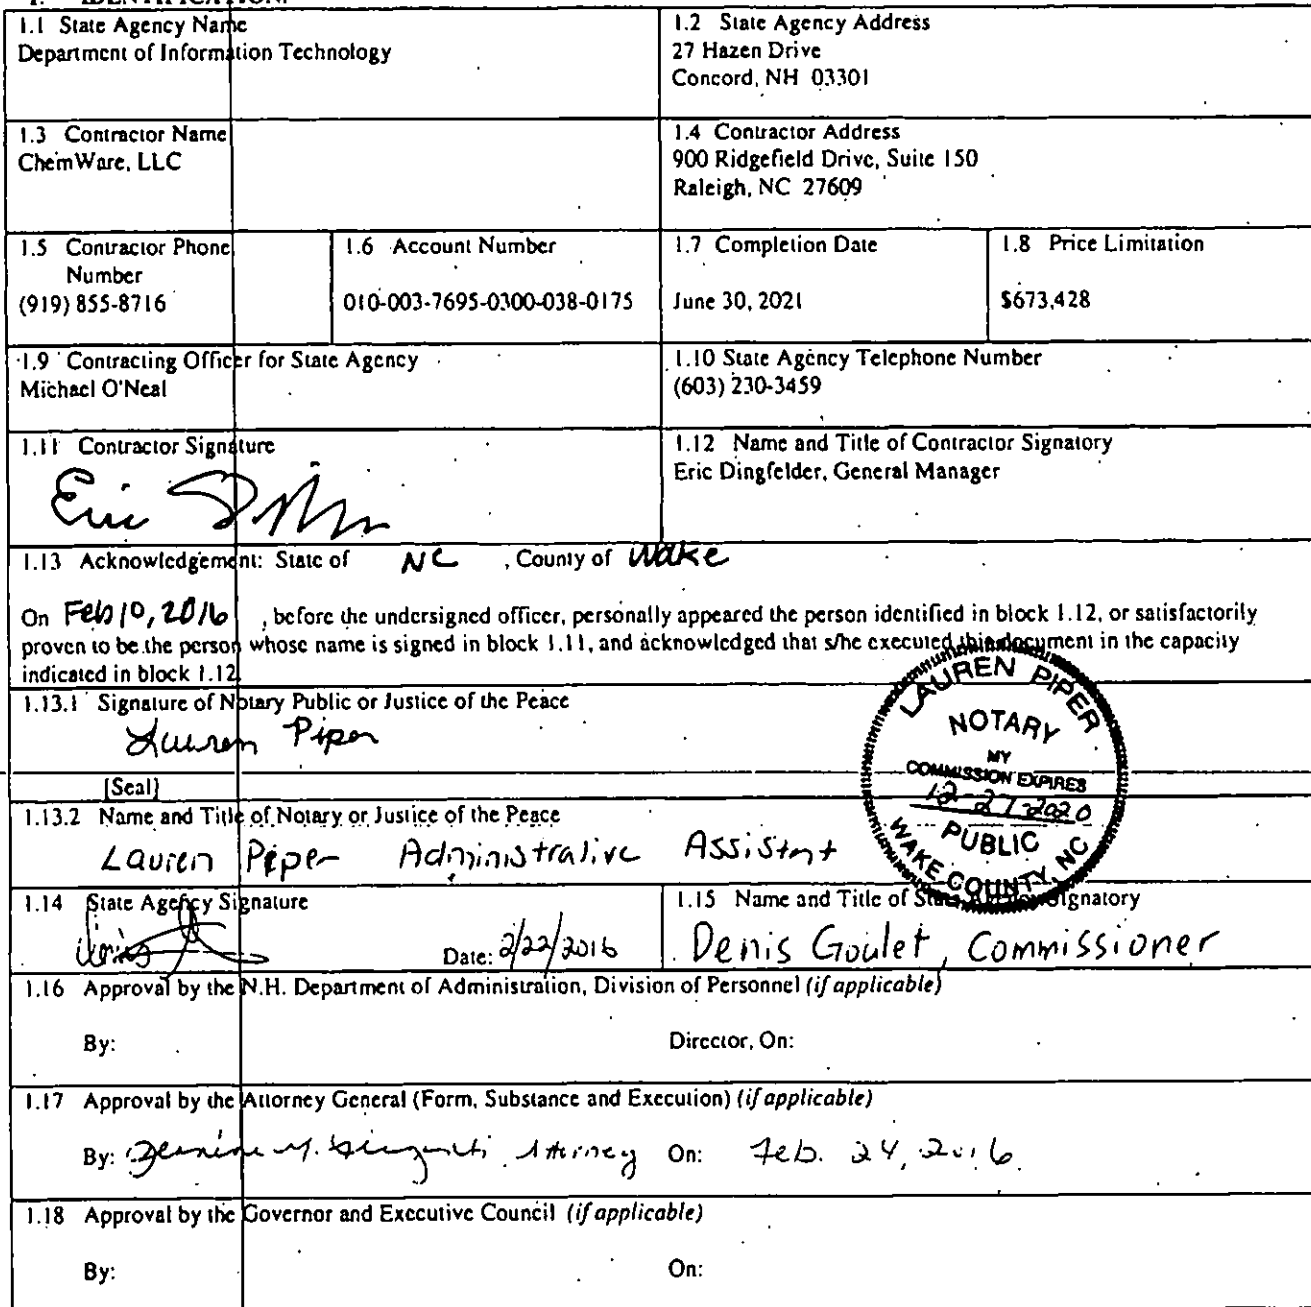 1. IDENTIFICATION.
1.1 State Agency Name
Department of Information Technology
1.2 State Agency Address
27 Hazen Drive
Concord, NH 03301
1.3 Contractor Name
ChemWare, LLC
1.4 Contractor Address
900 Ridgefield Drive, Suite 150
Raleigh, NC 27609
1.5 Contractor Phone
Number
(919) 855-8716
1.6 Account Number
010-003-7695-0300-038-0175
1.7 Completion Date
June 30, 2021
1.8 Price Limitation
$673,428
1.9 Contracting Officer for State Agency
Michael O'Neal
1.10 State Agency Telephone Number
(603) 230-3459
1.11 Contractor Signature
Eric
1.12 Name and Title of Contractor Signatory
Eric Dingfelder, General Manager
1.13 Acknowledgement: State of NC , County of Wake
On Feb 10, 2016 , before the undersigned officer, personally appeared the person identified in block 1.12, or satisfactorily
proven to be the person whose name is signed in block 1.11, and acknowledged that s/he executed this document in the capacity
indicated in block 1.12.
1.13.1 Signature of Notary Public or Justice of the Peace
Lauren Piper
[Seal]
LAUREN PIPER
NOTARY
MY
COMMISSION EXPIRES
12-27-2020
PUBLIC
WAKE COUNTY, NC
1.13.2 Name and Title of Notary or Justice of the Peace
Lauren Piper Administrative Assistant
1.14 State Agency Signature
Date: 2/22/2016
1.15 Name and Title of State Agency Signatory
Denis Goulet, Commissioner
1.16 Approval by the N.H. Department of Administration, Division of Personnel (if applicable)
By: Director, On:
1.17 Approval by the Attorney General (Form, Substance and Execution) (if applicable)
By: Attorney On: Feb. 24, 2016
1.18 Approval by the Governor and Executive Council (if applicable)
By: On: